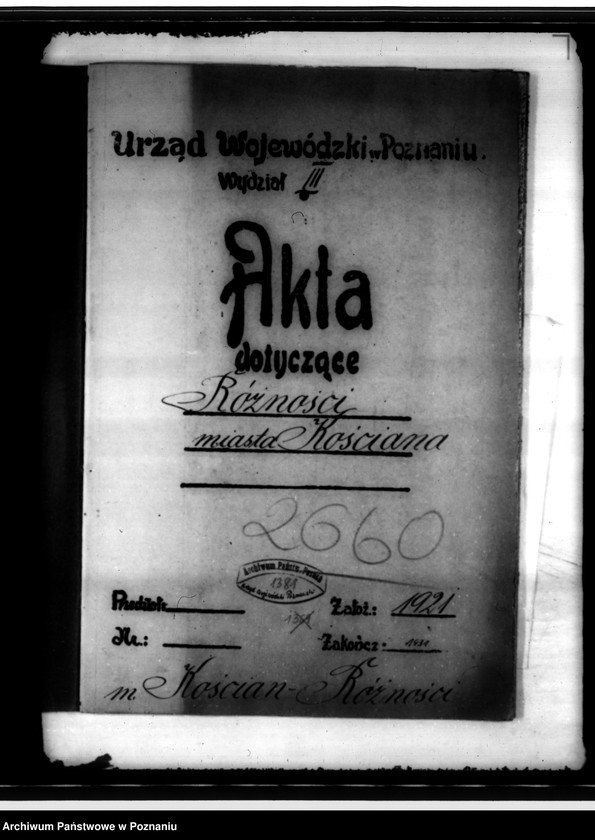 Urząd Wojewódzki w Poznaniu.
Wydział III
Akta
dotyczące
Różności
miasta Kościana
2660
Archiwum Państw. Poznań
1381
Założ.: 1921
Nr.:
Zakończ.:
m. Kościan - Różności
Archiwum Państwowe w Poznaniu